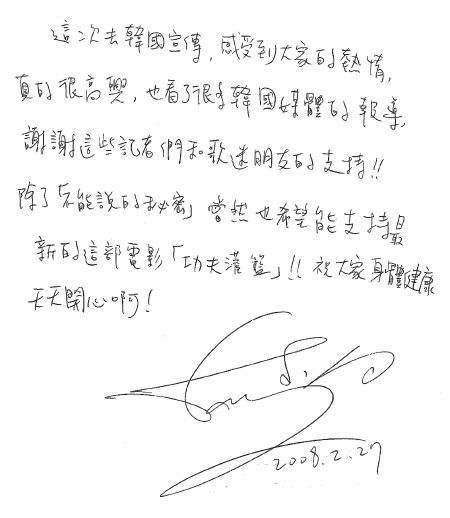 這次去韓國宣傳,感受到大家的熱情,
真的很高興,也看了很多韓國媒體的報導,
謝謝這些記者們和歌迷朋友的支持!!
除了「不能說的秘密」當然也希望能支持最
新的這部電影「功夫灌籃」!!祝大家身體健康
天天開心啊!
2008.2.27